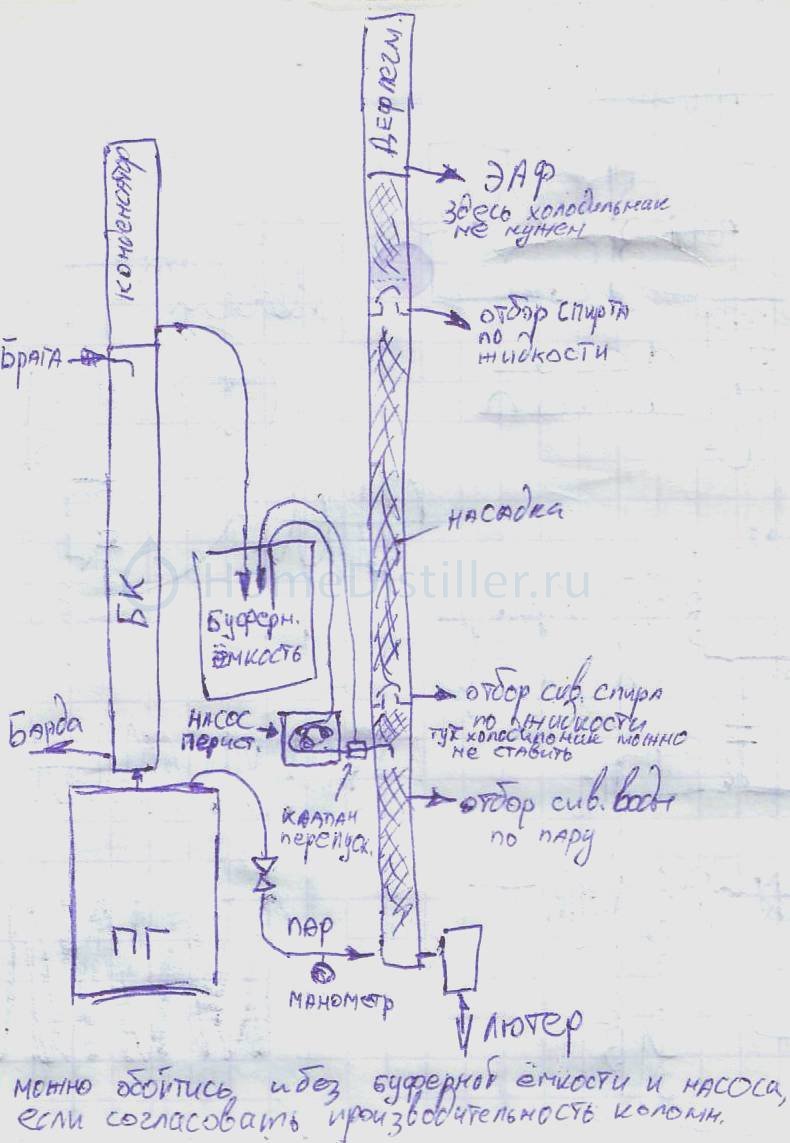 Дефлегм.
ЭАФ
здесь холодильник
не нужен
конденсатор
отбор спирта
по
жидкости
БРАГА
НАСАДКА
HomeDistiller.ru
БК
Буферн.
ёмкость
отбор сив. спирта
по жидкости
тут холодильник можно
не ставить
Барда
НАСОС
перист.
отбор сив. воды
по пару
клапан
перепуск.
ПГ
ПАР
МАНОМЕТР
ЛЮТЕР
можно обойтись и без буферной ёмкости и насоса,
если согласовать производительность колонн.